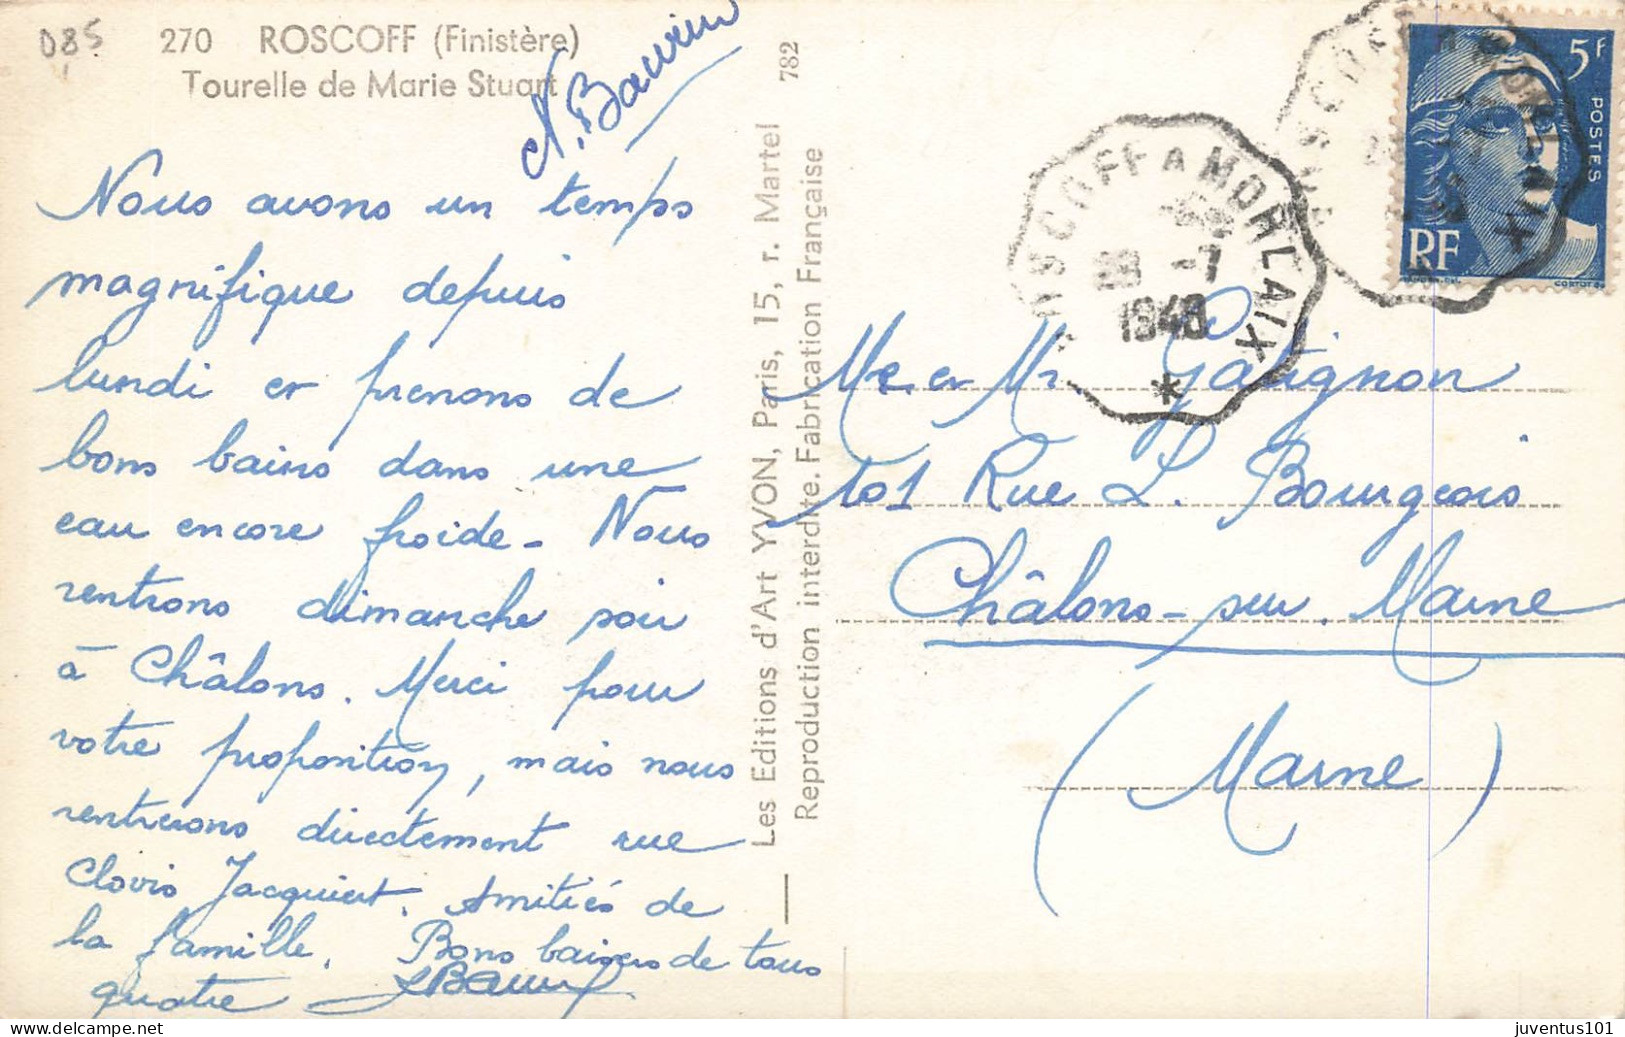 085
270 ROSCOFF (Finistère)
Tourelle de Marie Stuart
Nous avons un temps
magnifique depuis
lundi et prenons de
bons bains dans une
eau encore froide - Nous
rentrons dimanche soir
à Châlons. Merci pour
votre proposition, mais nous
rentrerons directement rue
Clovis Jacquiert. Amitiés de
la famille. Bons baisers de tous
quatre
Les Editions d'Art YVON, Paris, 15, r. Martel
Reproduction interdite. Fabrication Française
782
ROSCOFF A MORLAIX
1948
5F
POSTES
RF
Me et Mr Gatignon
101 Rue L. Bourgeois
Châlons-sur-Marne
(Marne)
juventus101